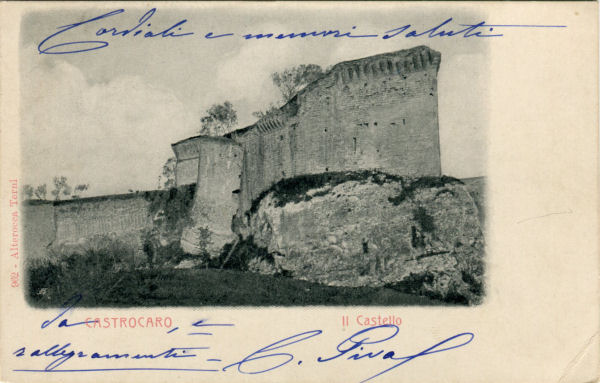 Cordiali e memori saluti
902 - Alterocca Terni
CASTROCARO Il Castello
da , e
rallegramenti - C. Piva